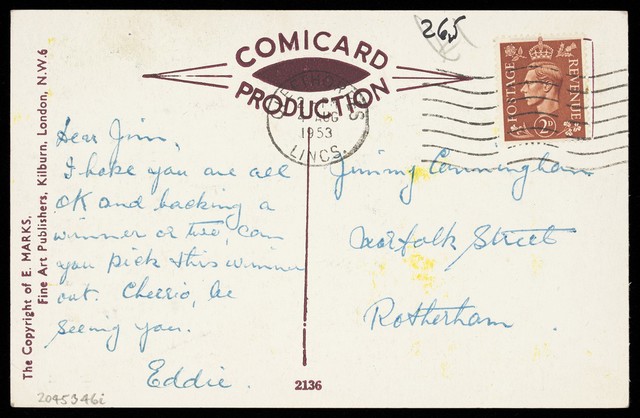 265
COMICARD
PRODUCTION
POSTAGE
REVENUE
2D
AUG
1953
LINCS.
Dear Jim,
I hope you are all
OK and backing a
winner or two, can
you pick this winner
out. Cheerio, be
seeing you.
Eddie.
Jimmy Cunningham
Norfolk Street
Rotherham.
The Copyright of E. MARKS,
Fine Art Publishers, Kilburn, London, N.W.6
2136
2045346i